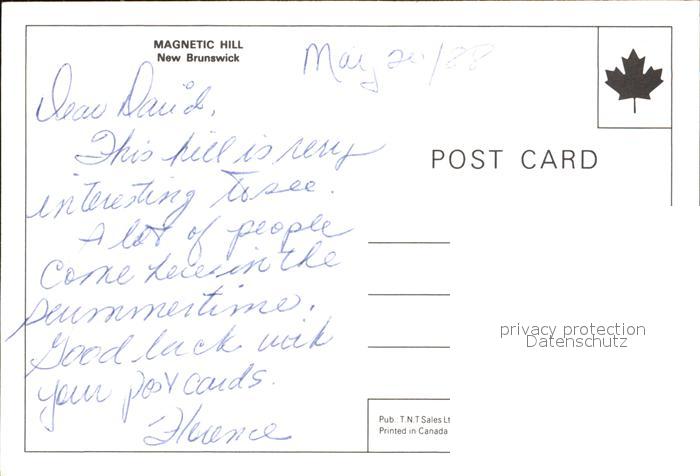 MAGNETIC HILL
New Brunswick
May 20/88
Dear David,
This hill is very
interesting to see.
A lot of people
come here in the
summertime.
Good luck with
your post cards.
Florence
POST CARD
privacy protection
Datenschutz
Pub: T.N.T Sales Lt
Printed in Canada